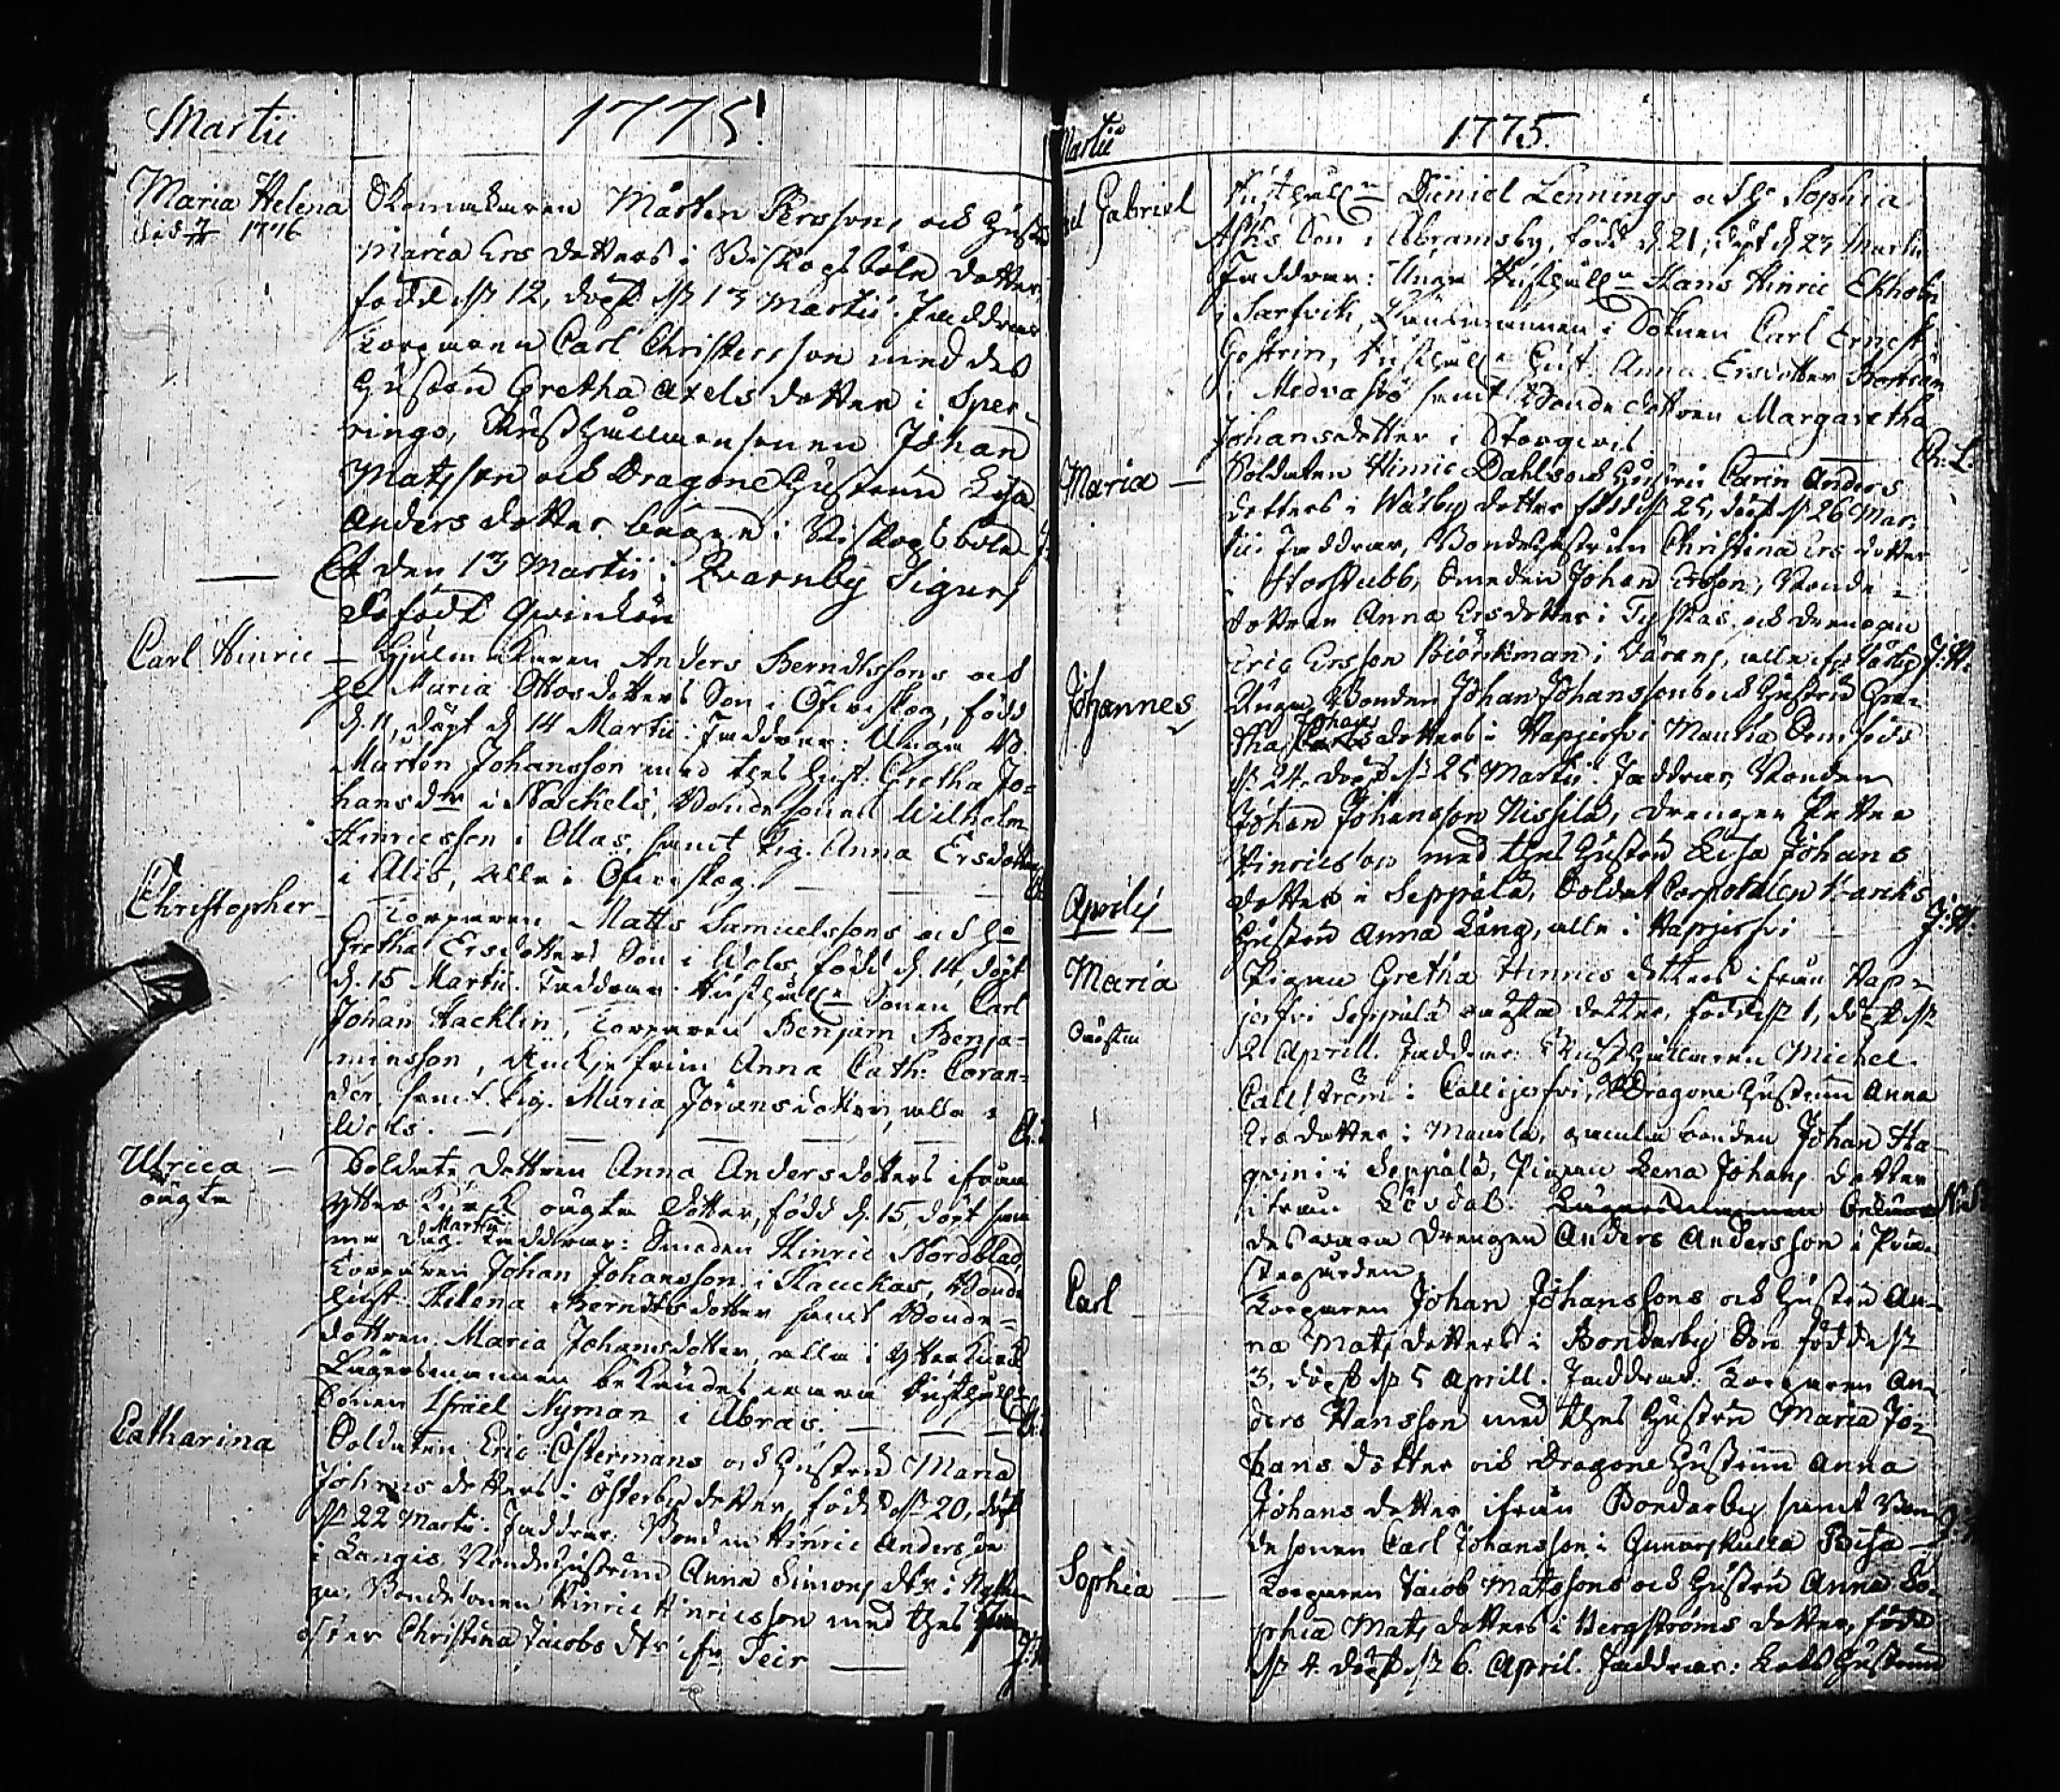 Martii 1775
Maria Helena Skomakaren Mårten Perssons och Hustr
1776 Maria Ersdotters i Biskopsböle dotter,
född d 12, döpt d 13 Martii. Faddrar
Torparen Carl Christersson med des
Hustru Gretha Axels dotter i Sper-
rings, Rusthållaresonen Johan
Matsson och Dragone Hustrun Lisa
Anders dotter, begge i Biskopsböle
— Et den 13 Martii i Qvarnby Sigurs
dödfödt Qvinkön
Carl Hinric — Hjulmakaren Anders Berndtssons och
Maria Ottosdotters Son i Öfverskog, född
d. 11, döpt d 14 Martii: Faddrar: Unga B.
Mårten Johansson med thes Hust. Gretha Jo-
hansdtr i Nackels, Bondesonen Wilhelm
Hinricsson i Ollas, samt Pig. Anna Ersdotter
i Alis, alla i Öfverskog.
Christopher — Torparen Matts Samuelssons och H
Gretha Ersdotters Son i Wols, född d. 14, döpt
d. 15 Martii. Faddrar: Rusthåll Sonen Carl
Johan Hacklin, Torparen Benjam Benja-
minsson, Anna Cath: Coran-
der. samt Pig. Maria Jöransdotter, alla i
Wols.
Ulrica — Soldate dottren Anna Andersdotters ifrån
oägta Ytter Kurk oägta dotter, född d. 15, döpt sam-
ma dag Martii. Faddrar: Smeden Hinric Nordblad,
Torparen Johan Johansson i Stauckas, Bonde
Hust. Helena Berndtsdotter samt Bonde-
dottren Maria Johansdotter, alla i Ytterkurk
Lägersmannen bekändes vara Rusthåll
Sonen Israël Nyman i Abrås.
Catharina Soldaten Eric Östermans och Hustru Maria
Johans dotters i Österby dotter, född d 20, döpt
d 22 Martii. Faddrar: Bonden Hinric Andersson
i Langis, Bondehustrun Anna Simons dtr i
Bondesonen Hinric Hinricsson med thes
syster Christina Jacobs dtr ifr Teir
Martii 1775.
Gabriel Rusthåll Daniel Lennings och H Sophia
Asks Son i Abramsby, född d 21, döpt d 23 Martii
Faddrar: Unga Rusthåll Hans Hinric Ekholm
i Sarfvik, Länsmannen i Soknen Carl Ernest
Gestrin, Rusthåll Hust. Anna Ersdotter
i Medvastö samt Bondedottren Margaretha
Johansdotter i Storqvis
Maria — Soldaten Hinric Dahls och Hustru Carin Anders
dotters i Wåhlby dotter född d 25, döpt d 26 Mar-
tii. Faddrar, Bondehustrun Christina Ersdotter
i Storstubb, Smeden Johan Ersson, Bonde-
dottren Anna Ersdotter i Tyskas, och drengen
Eric Ersson Biörkman i
Johannes Unga Bonden Johan Johanssons och Hustru Gre-
tha Johans dotters i Hapjerfvi Mantha Son född
d 24, döpt d 25 Martii. Faddrar, Bonden
Johan Johansson Nissilä, drengen Petter
Hinricsson med thes Hustru Lisa Johans
dotter i Seppälä, Soldat Corporalen
Hustru Anna Lång, alla i Hapjerfvi J:H:
Aprilis
Maria Pigan Gretha Hinrics dotters ifrån Hap-
oäkta jerfvi Seppälä oäkta dotter, född d 1, döpt d
2 Aprill. Faddrar: Rusthållaren Michel
Callström i Callijerfvi, Dragone Hustrun Anna
Ersdotter i Manla, gamla bonden Johan Ha-
i Seppälä, Pigan Lena Johans dotter
ifrån Lövdal. Lägersmannen bekän-
des vara drengen Anders Andersson i Prä-
stegården
Carl — Torparen Johan Johanssons och Hustru An-
na Mats dotters i Bondarby Son född d
3, döpt d 5 Aprill. Faddrar: Torparen An-
ders Hansson med thes Hustru Maria Jo-
hans dotter och Dragone Hustrun Anna
Johans dotter ifrån Bondarby samt Bon-
desonen Carl Johansson i Gunnarskulla
Sophia — Torparen Jacob Matssons och Hustru Anna So-
phia Mats dotters i Bergströms dotter, född
d 4. döpt d 6. April. Faddrar: Hustrun